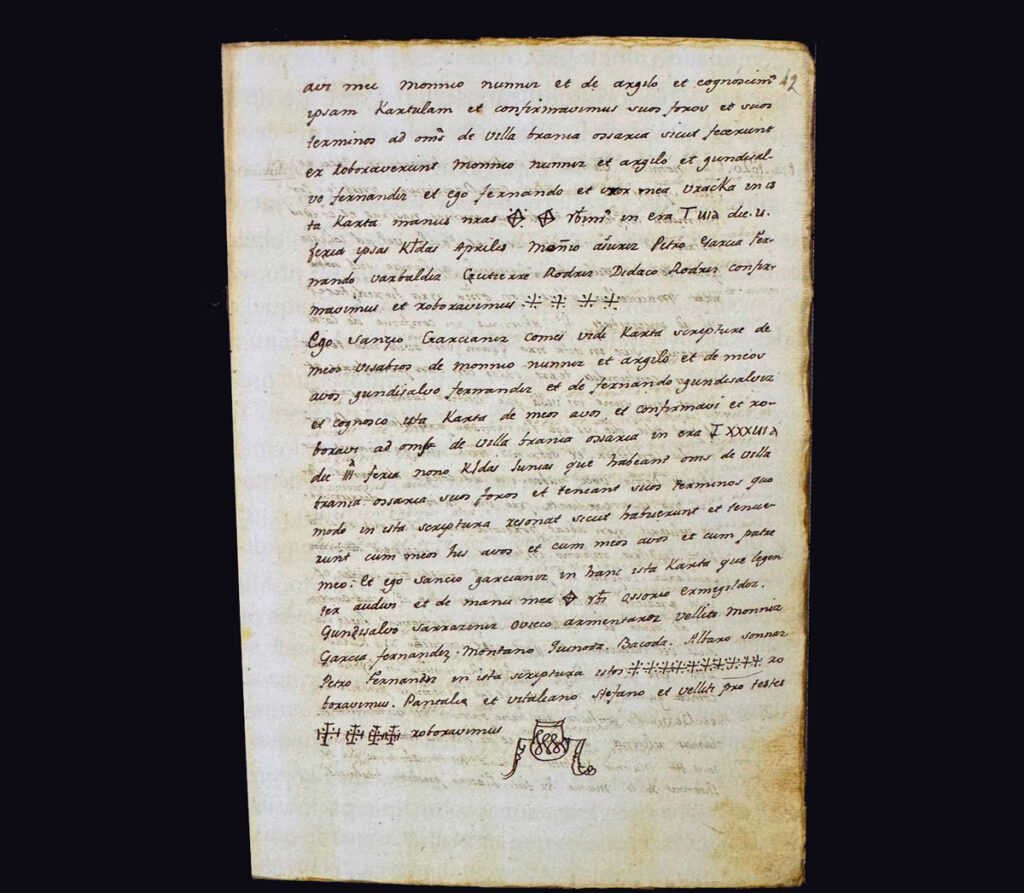 avi mei monnio nunniz et de argilo et cognoscim⁹
ipsam Kartulam et confirmavimus suos foros et suos
terminos ad om̃s de villa brania ossaria sicut fecerunt
et Roboraverunt monnio nunniz et argilo et gundisal-
vo fernandiz et ego fernando et uxor mea vracka in is
ta Karta manus nras in era T die. u.
feria ipsas Kldas Aprilis Petro Garcia Fer-
nando varbaldiz Gutierre Rodriz Didaco Rodriz confir-
mavimus et roboravimus
Ego Sancio Garcianiz comes vidi Karta scripture de
meos visabios de monnio nunniz et argilo et de meos
avos gundisalvo fernandiz et de fernando gundisalviz
et cognosco ista Karta de meos avos, et confirmavi et ro-
boravi ad oms de villa brania ossaria in era
die III feria nono Kldas Iunias que habeant oms de villa
brania ossaria suos foros et teneant suos terminos quo
modo in ista scriptura resonat sicut habuerunt et tenue-
runt cum meos bis avos et cum meos avos et cum patre
meo: Et ego sancio garcianiz in hanc ista Karta que legen
ter audivi et de manu mea Ossorio Ermegildez.
Gundisalvo sarraziniz Ovieco armentaroz Vellito monniz
Garcia fernandez. Montano Bacoda. Alfaro sonnaz
Petro Fernandez in ista scriptura istos ro
boravimus. et vitaliano Stefano et velliti pro testes
roboravimus